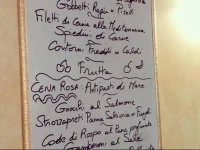 Gobbetti Ragù e Piselli
Filetti di Carne alla Mediterranea
Spiedini di Carne
Contorni Freddi e Caldi
Frutta
CENA ROSA: Antipasti di Mare
Gnocchi al Salmone
Strozzapreti Panna Salsiccia e Funghi
Code di Rospo al Pane profumato
Gamberoni al Sale